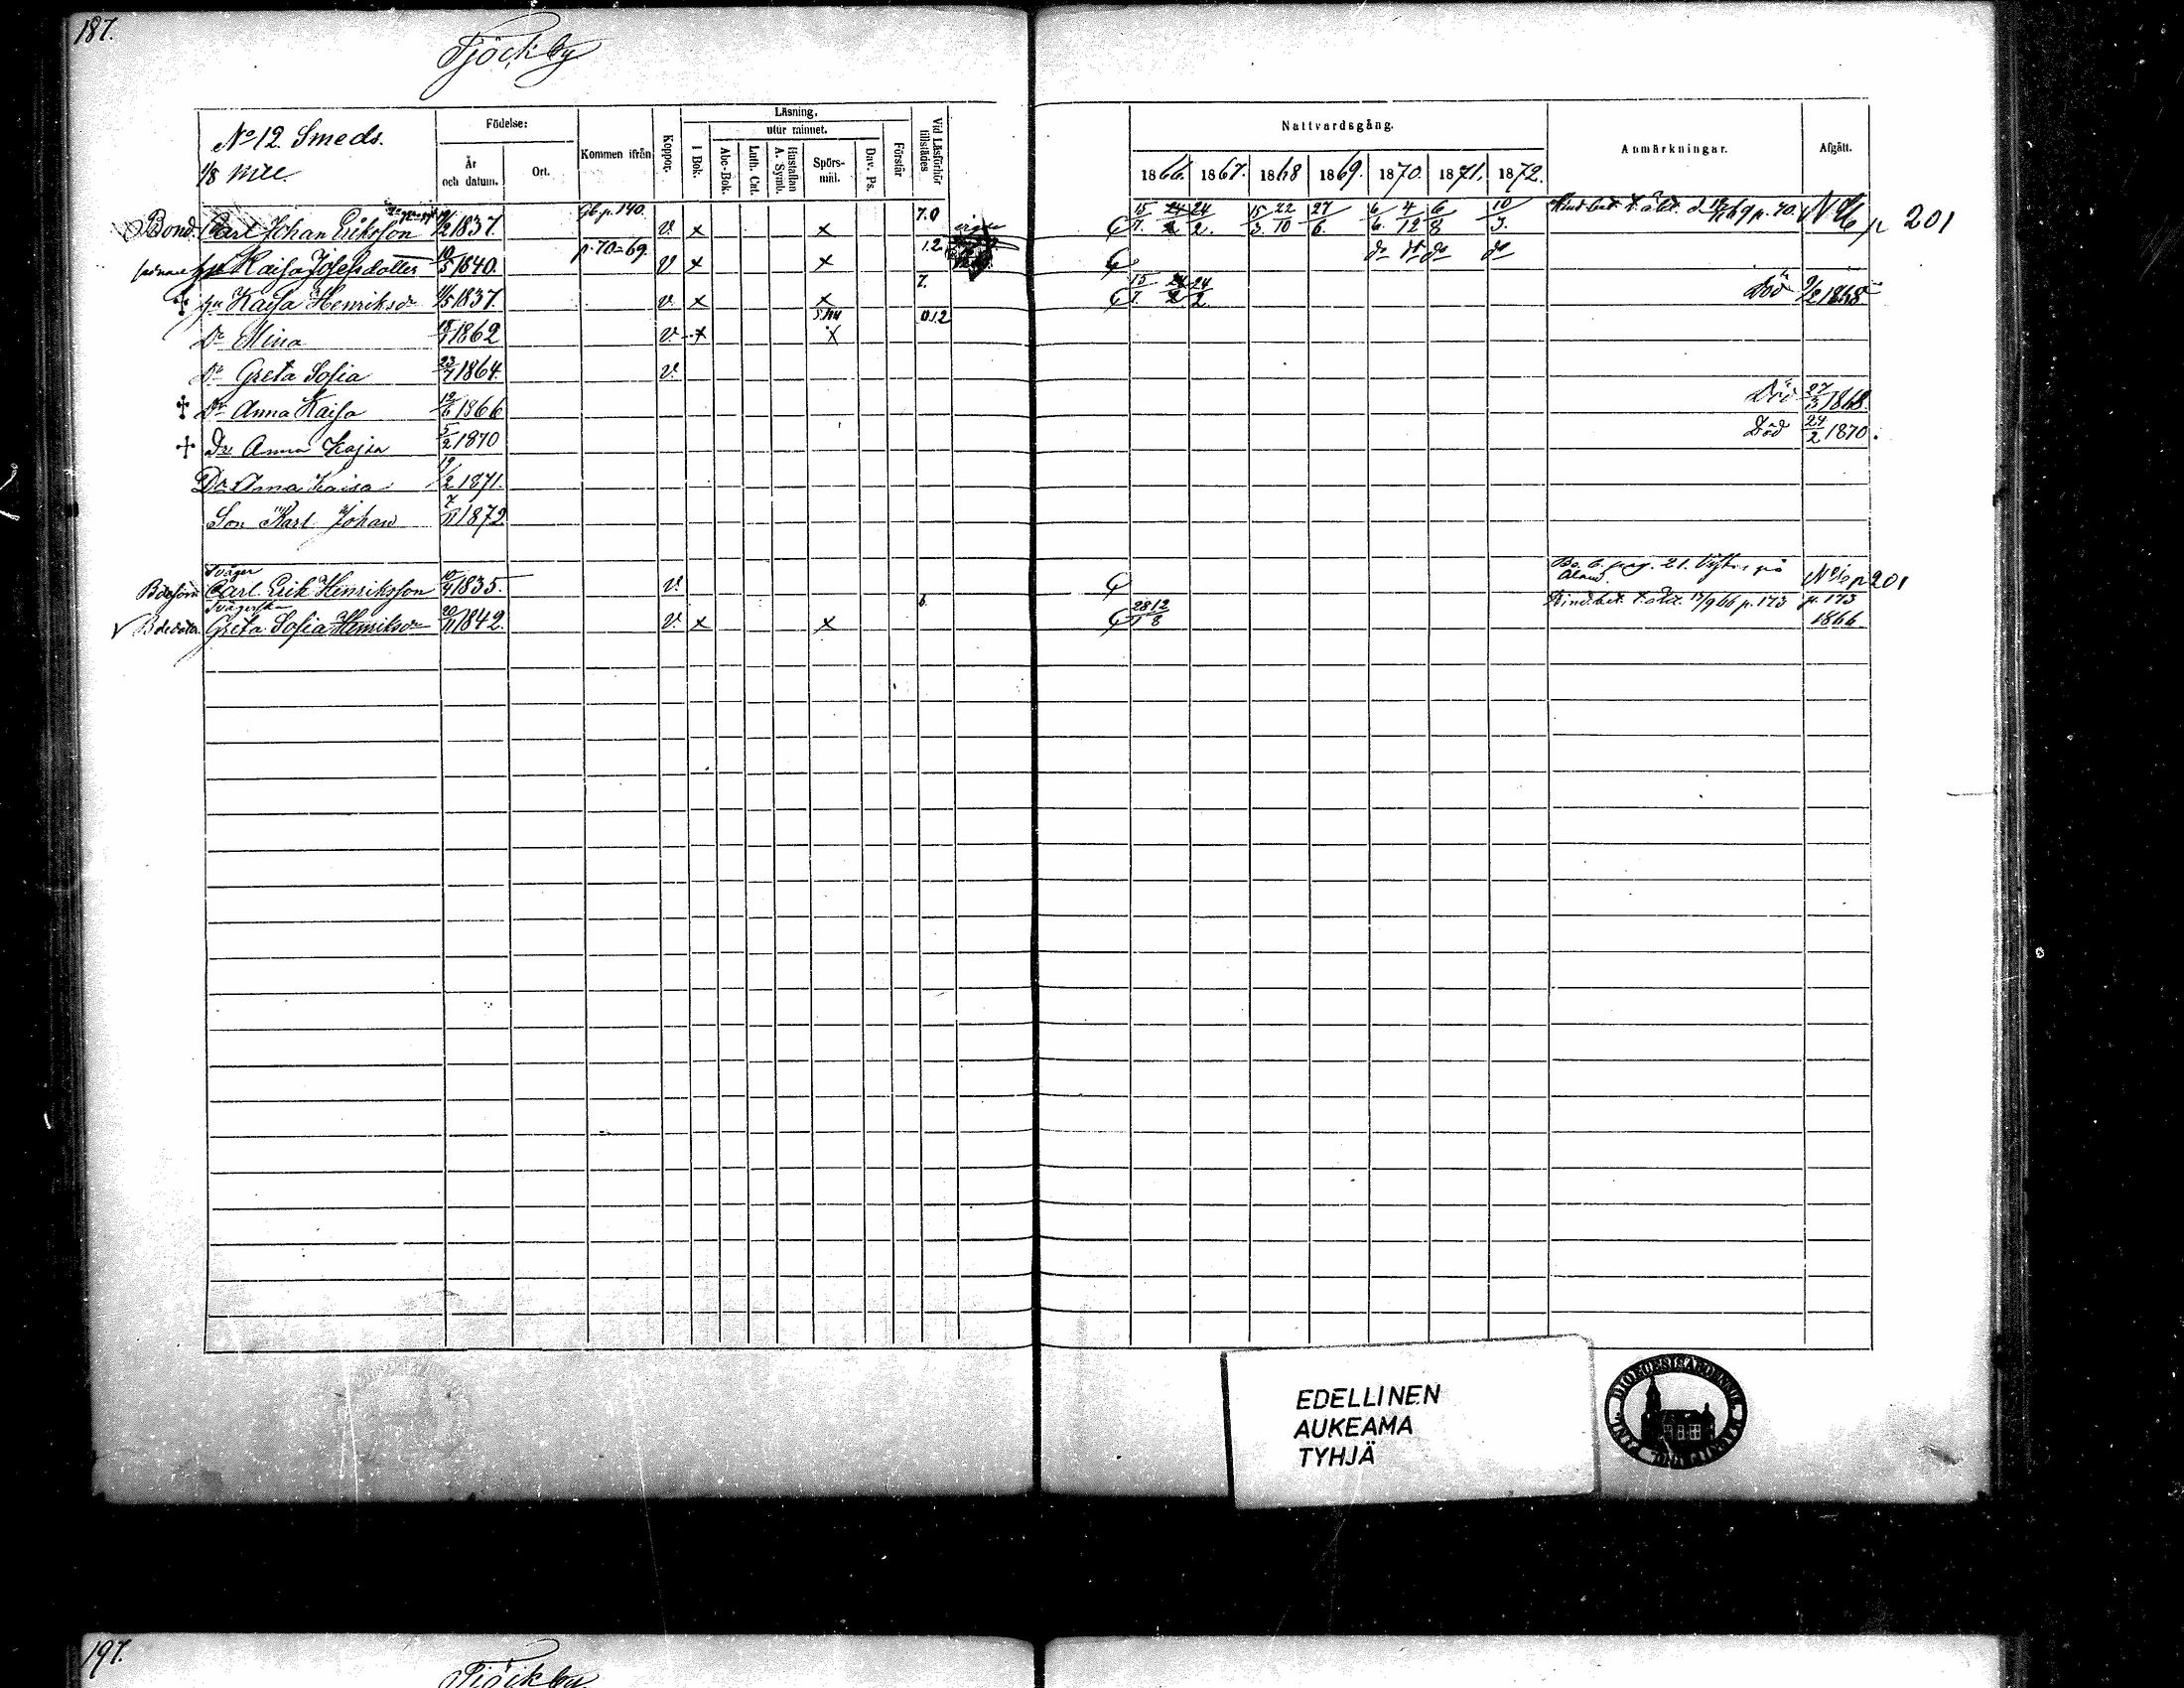 187.
Tjöckby
No 12 Smeds.
1/8 mtl.
Födelse:
År och datum.
Ort.
Kommen ifrån
Koppor.
Läsning.
utur minnet.
I Bok.
Abc-Bok.
Luth. Cat.
Hustaflan A. Symb.
Spörs-mål.
Dav. Ps.
Förstår
Vid Läsförhör tillstädes
Nattvardsgång.
1866. 1867. 1868 1869. 1870. 1871. 1872.
Anmärkningar.
Afgått.
Bond. Carl Johan Eriksson 1837. Gb. p. 140. v x x 7.0 15/7 24/2 15/3 22/10 27/6 6/6 4/12 6/8 10/3. p 201
Kaisa Josefsdotter 10/5 1840. p. 70=69. v x x 1.2 do do do do
hu Kaisa Henriksdr 1837. v. x x 7. 15/7 24/2 Död 9/2 1868
Dr Mina 1862 v. x x 0.1.2
Dr Greta Sofia 23/7 1864. v.
Dr Anna Kaisa 12/6 1866 Död 27/3 1868.
Dr Anna Kajsa 5/2 1870 Död 24/2 1870.
Dr Anna Kaisa 19/2 1871.
Son Karl Johan 7/11 1872
Svåger
Bdeson Carl Erik Henriksson 1835. v. Be. b. pag. 21. Vistas på Åland. p 201
Svägerska
Bdedoter Greta Sofia Henriksdr 20/11 1842. v. x x 6. 28/1 12/8 p. 173 p. 173 1866.
EDELLINEN
AUKEAMA
TYHJÄ
197.
Tjöckby